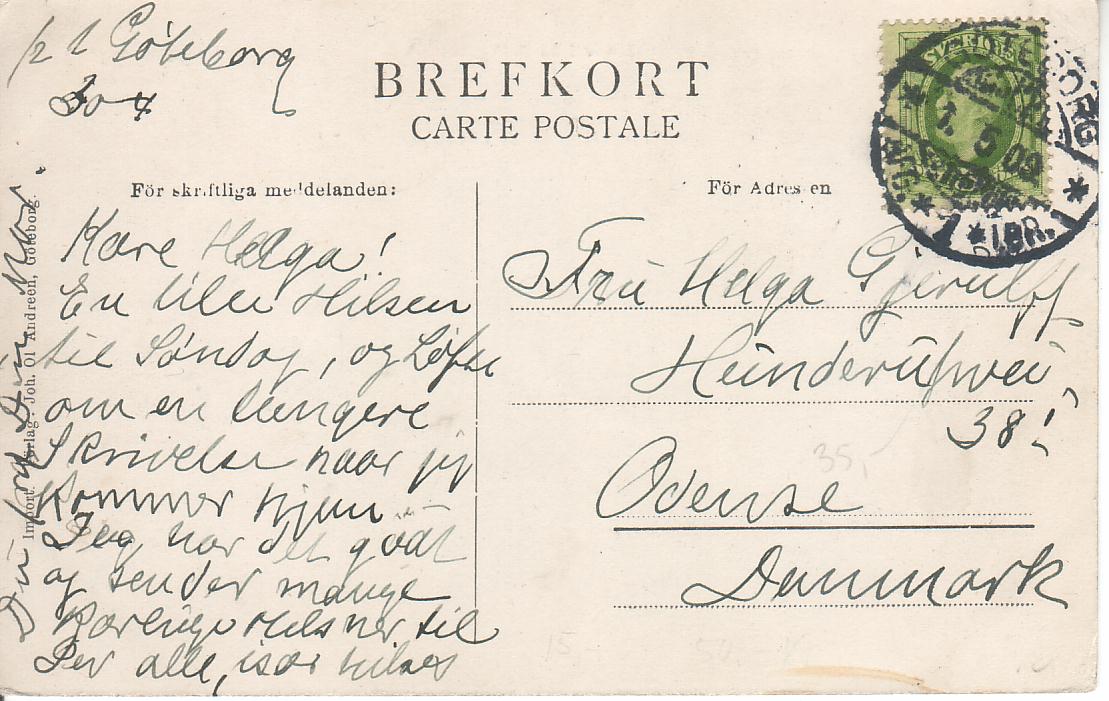 Göteborg
30 4
BREFKORT
CARTE POSTALE
För skriftliga meddelanden:
För Adressen
SVERIGE
1. 5 09
1 * 1 BR. 1 *
Kære Helga!
En lille Hilsen
til Søndag, og Løfte
om en længere
Skrivelse naar jeg
kommer hjem
Jeg har det godt
og sender mange
Kærlige Hilsner til
Jer alle, især hilses
Du og Din Mor.
Fru Helga Gjerulff
Hunderupvei,
38!
Odense
Danmark
35,-
Import. Förlag. Joh. Ol. Andreen, Göteborg.